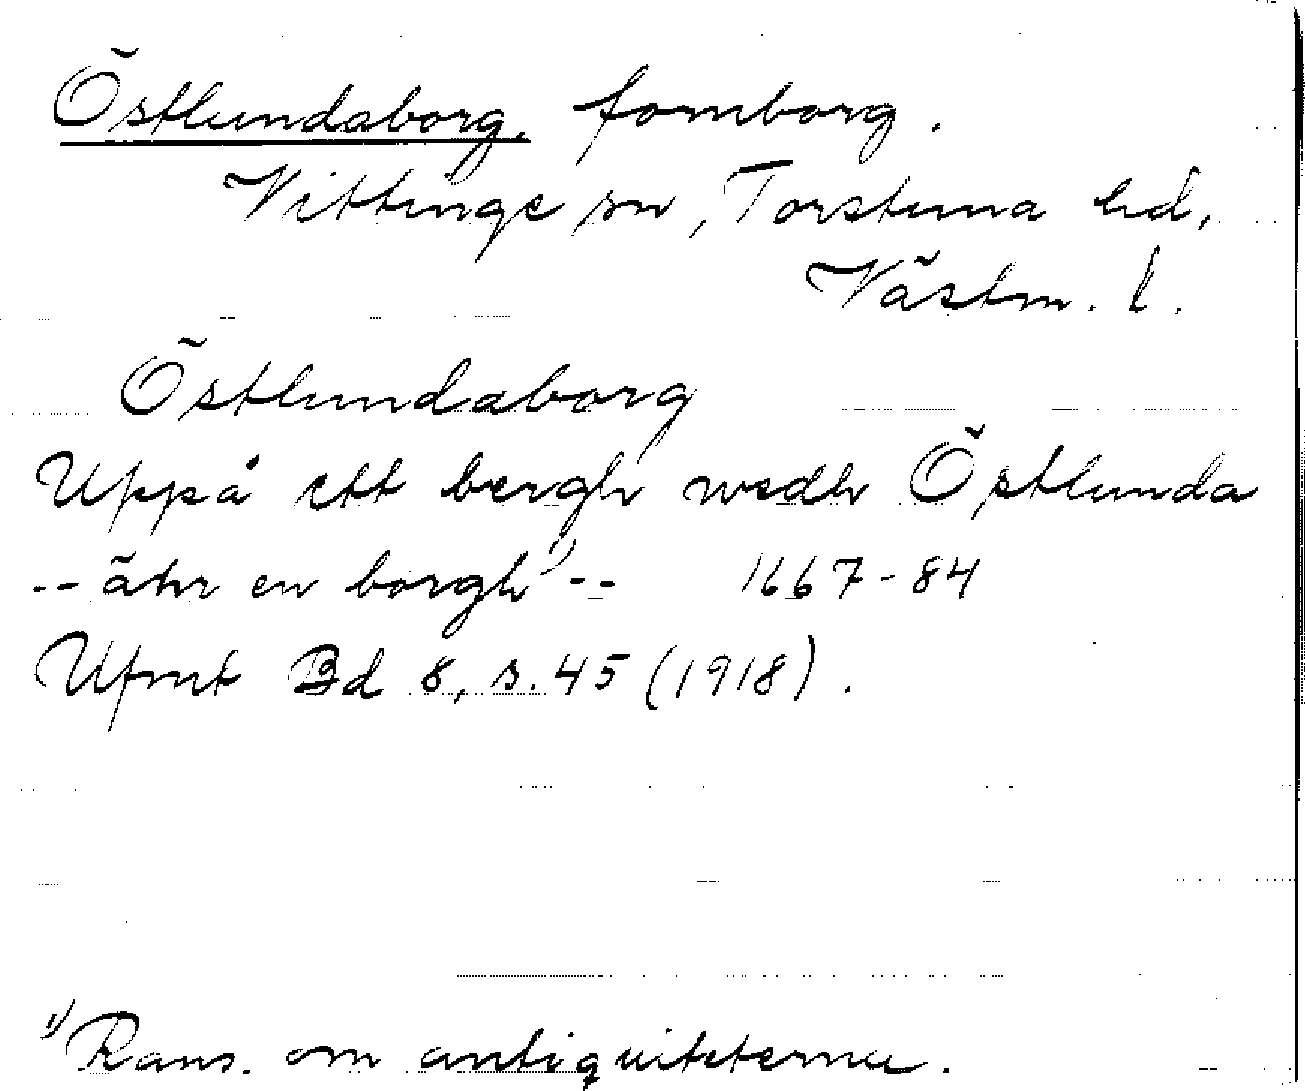 Östlundaborg, fornborg.
Vittinge sn, Torstuna hd,
Västm. l.
Östlundaborg
Uppå ett bergh wedh Östlunda
-- ähr en borgh 1) -- 1667-84
Ufmt Bd 8, s. 45 (1918).
1) Rans. om antiquiteterne.